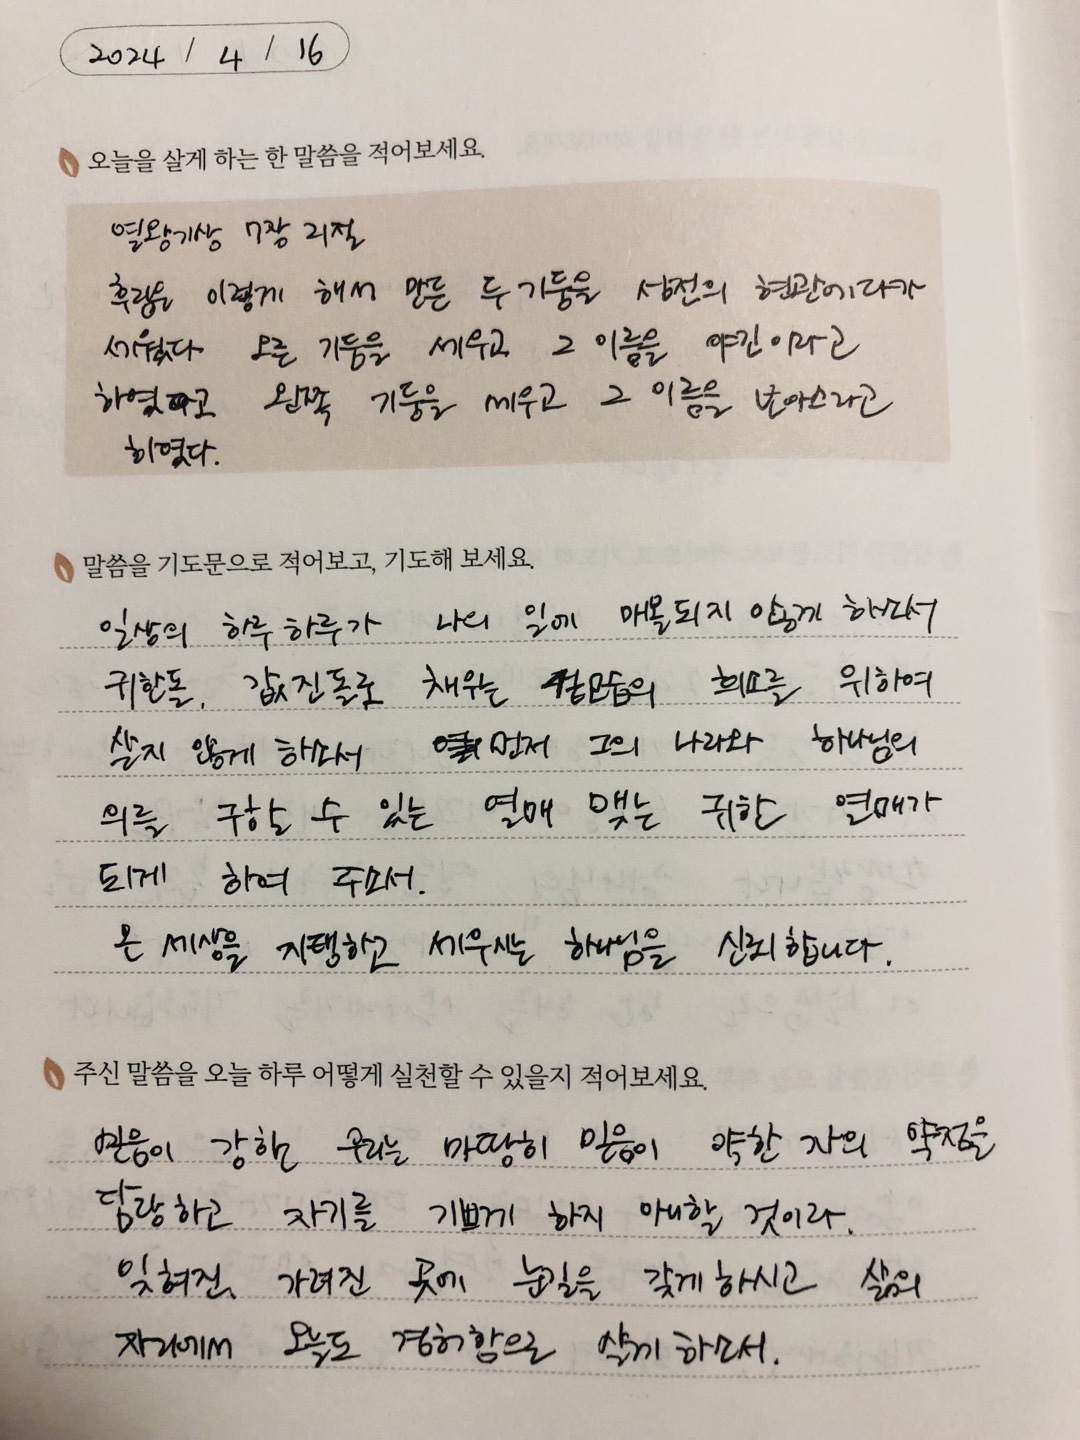 2024 / 4 / 16
오늘을 살게 하는 한 말씀을 적어보세요.
열왕기상 7장 21절
후람은 이렇게 해서 만든 두 기둥을 성전의 현관에다가
세웠다 오른 기둥을 세우고 그 이름을 야긴이라고
하였고 왼쪽 기둥을 세우고 그 이름을 보아스라고
하였다.
말씀을 기도문으로 적어보고, 기도해 보세요.
일상의 하루하루가 나의 일에 매몰되지 않게 하소서
귀한돌, 값진돌로 채우는 겉모습의 화려를 위하여
살지 않게 하소서 먼저 그의 나라와 하나님의
의를 구할 수 있는 열매 맺는 귀한 열매가
되게 하여 주소서.
온 세상을 지탱하고 세우시는 하나님을 신뢰합니다.
주신 말씀을 오늘 하루 어떻게 실천할 수 있을지 적어보세요.
믿음이 강한 우리는 마땅히 믿음이 약한 자의 약점을
담당하고 자기를 기쁘게 하지 아니할 것이라.
잊혀진, 가려진 곳에 눈길을 갖게 하시고 삶의
자리에서 오늘도 겸허함으로 살게 하소서.